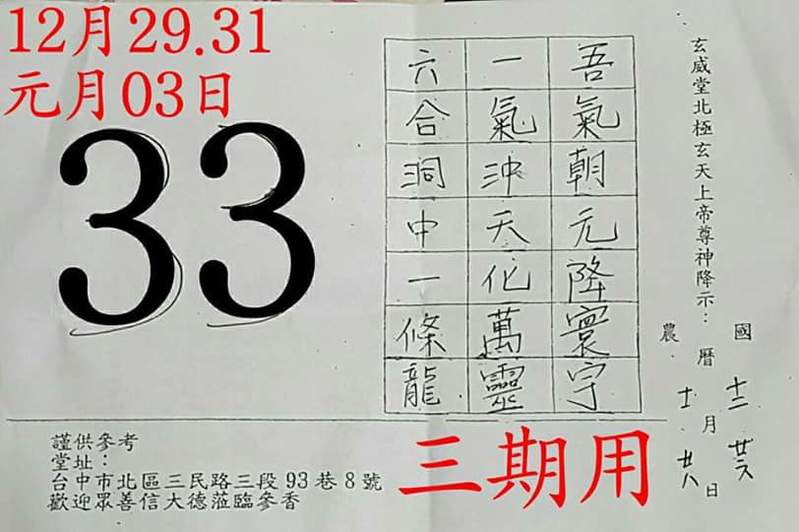 12月29.31
元月03日
33
玄威堂北極玄天上帝尊神降示：
國曆 十二月廿六日
農曆 十一月廿八日
吾氣朝元降寰宇
一氣沖天化萬靈
六合洞中一條龍
謹供參考
堂址：
台中市北區三民路三段93巷8號
歡迎眾善信大德蒞臨參香
三期用